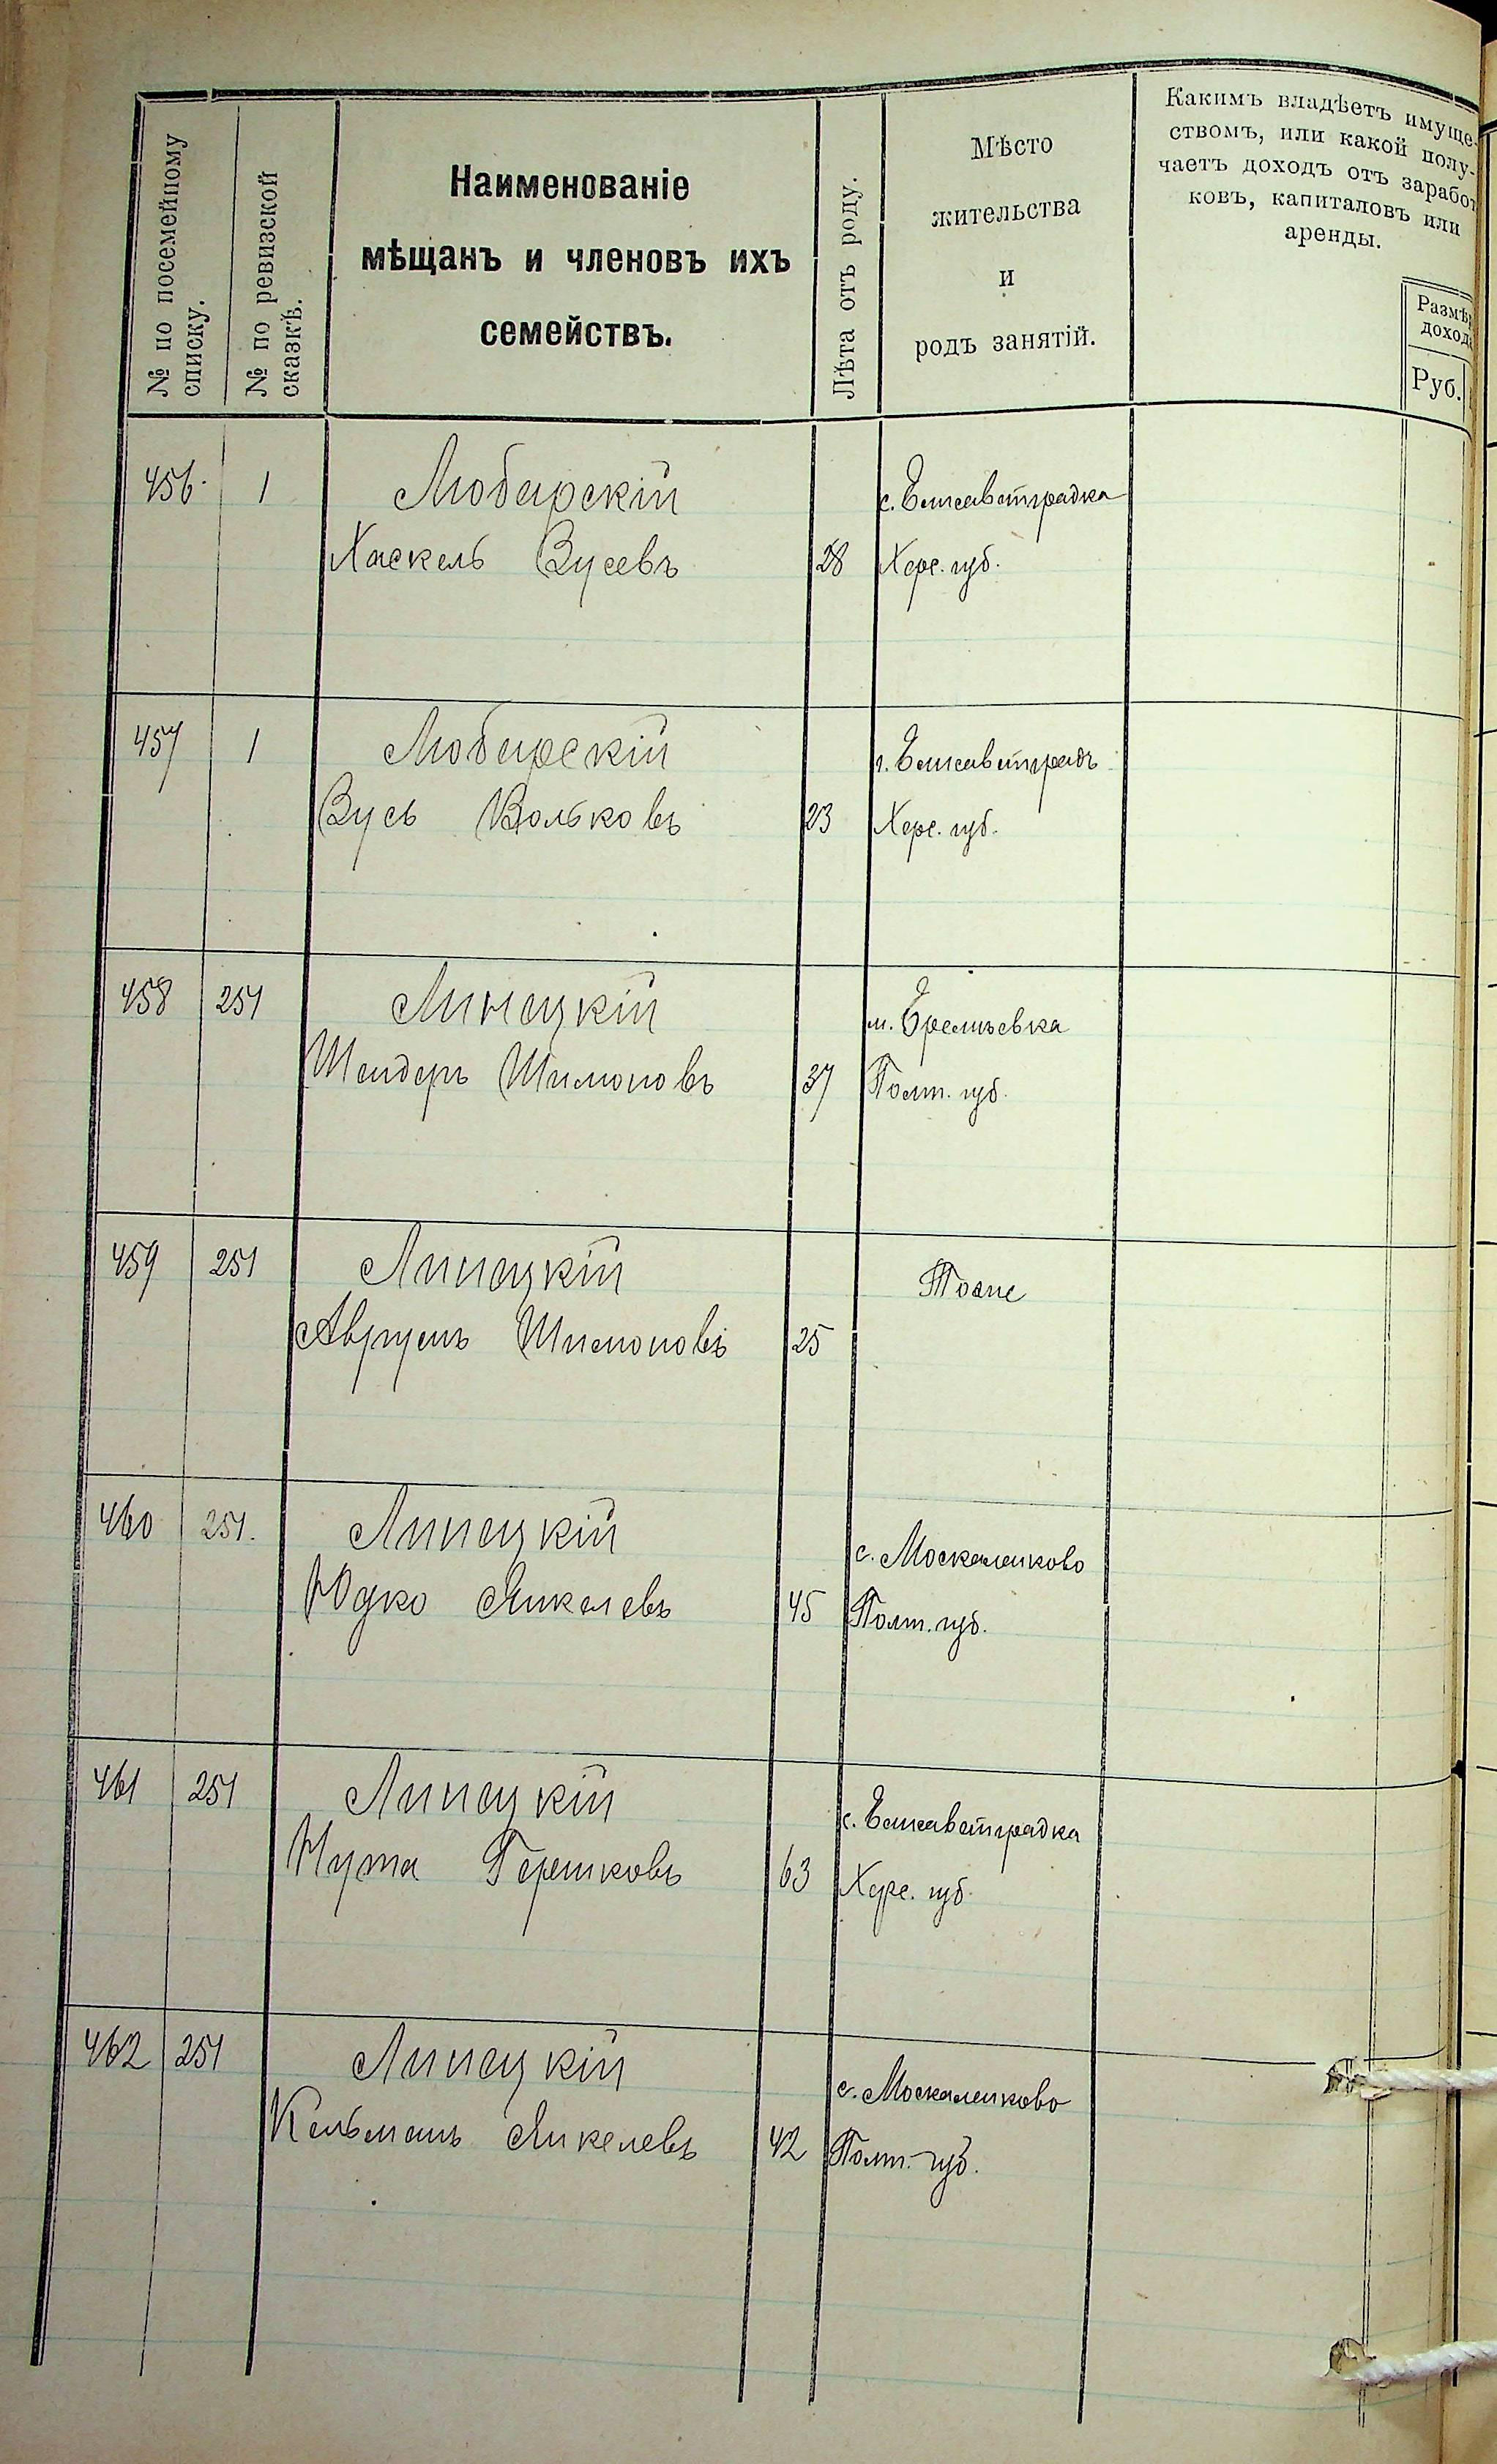 № по посемейному
списку.
№ по ревизской
сказкѣ.
Наименованіе
мѣщанъ и членовъ ихъ
семействъ.
Лѣта отъ роду.
Мѣсто
жительства
и
родъ занятій.
Какимъ владѣетъ имуще-
ствомъ, или какой полу-
чаетъ доходъ отъ заработ
ковъ, капиталовъ или
аренды.
Размѣр
дохода
Руб.
456. 1 Любарскій с. Елисаветградка
Хаскель Зусевъ 28 Херс. губ.
457 1 Любарскій г. Елисаветградъ
Зусь Вольковъ 23 Херс. губ.
458 251 Линецкій м.
Шендеръ Шимоновъ 37 Полт. губ.
459 251 Линецкій Тоже
Аврумъ Шимоновъ 25
460 251. Линецкій с. Москаленково
Юдко Янкелевъ 45 Полт. губ.
461 251 Линецкій с. Елисаветградка
Нута Гершковъ 63 Херс. губ.
462 251 Линецкій с. Москаленково
Кельманъ Янкелевъ 42 Полт. губ.